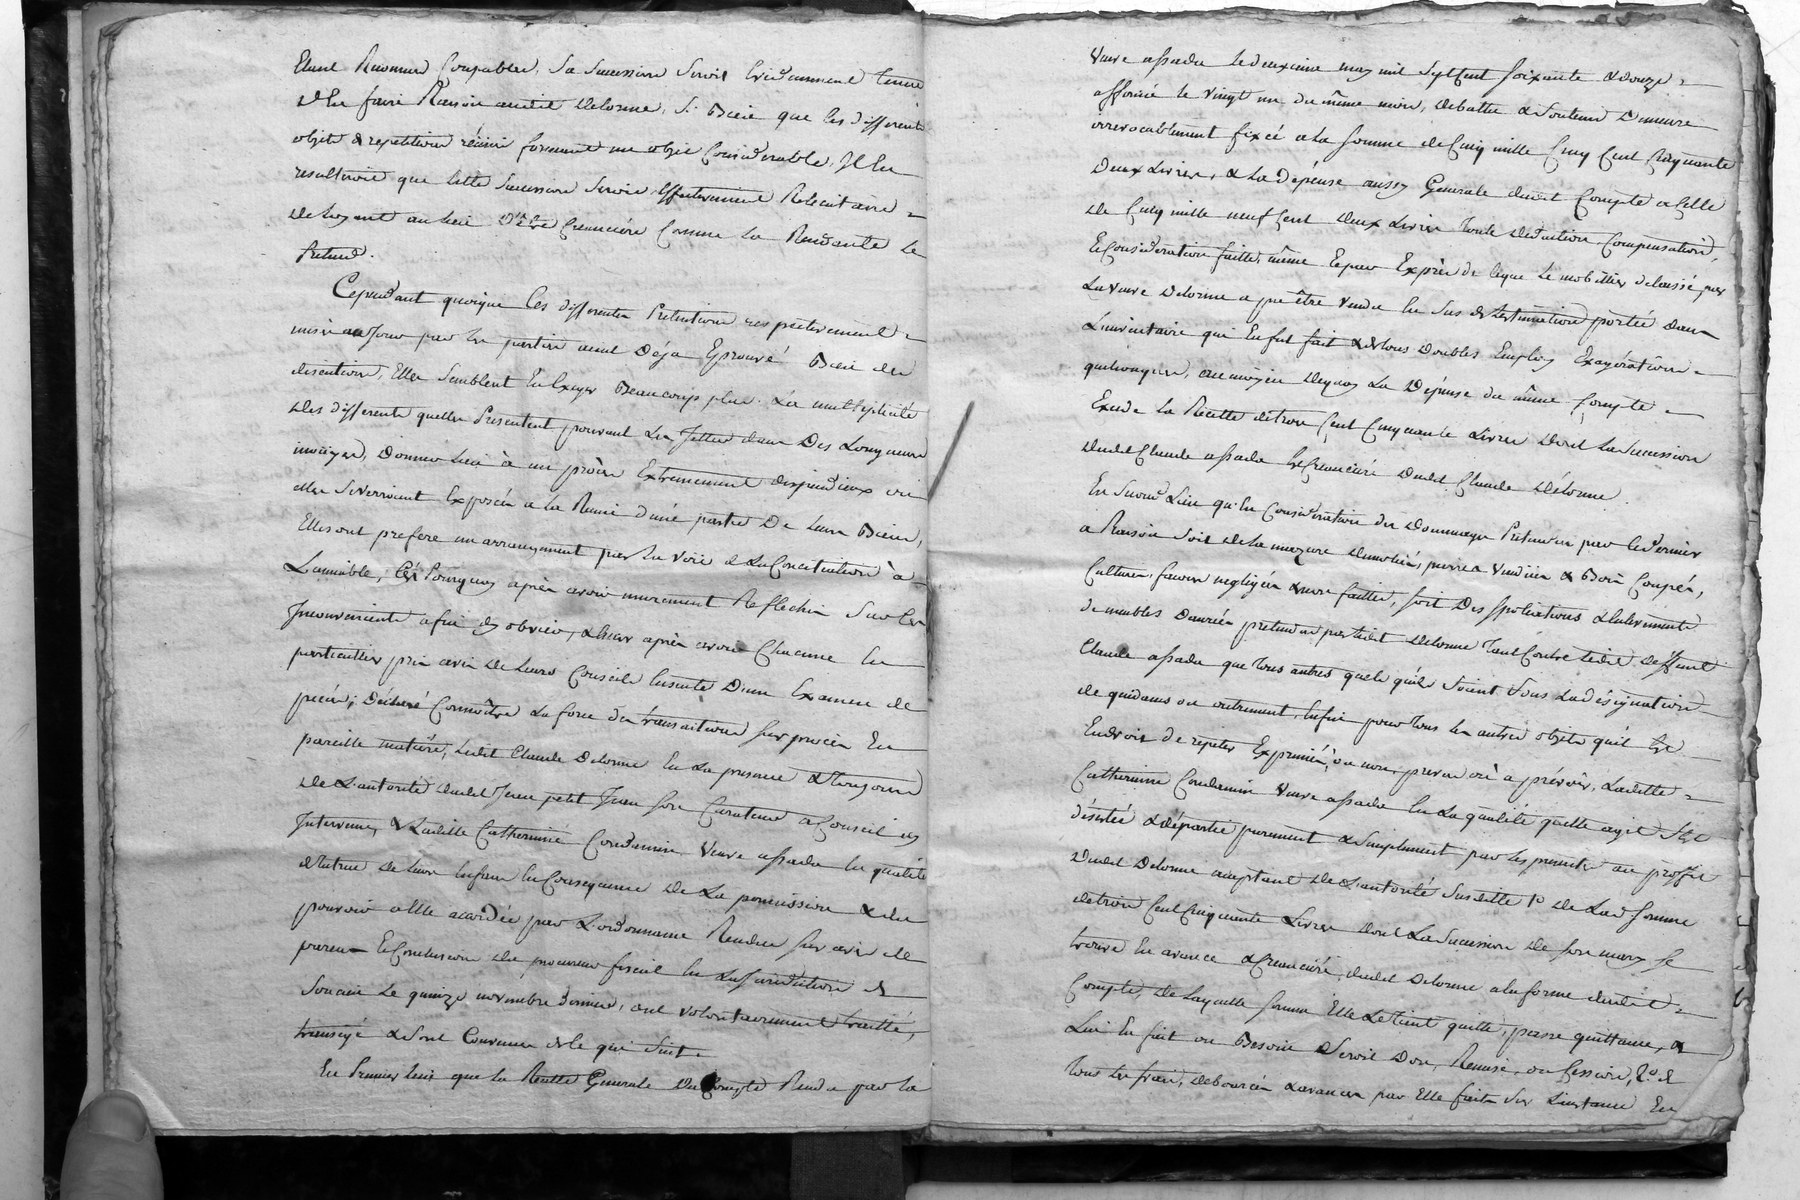 Etant Reconnues Coupables, Sa Succession Seroit Evidemment tenue
d'En faire Raison audit Delorme, Si Bien que les differents
objets de repetition réunis formant un objet Considerable, Il En
resulteroit que Cette Succession Seroit Effectivement Reliquataire
de loyent au lieu D'Etre Creancière Comme la Rendante le
pretend.
Cependant quoique les differentes Pretentions respectivement
mises au Jour par les parties aient Déja Eprouvé Bien des
discutions, Elles Semblent En Exiger Beaucoup plus. La multiplicité
des differents qu'elles Presentent pouvant Les Jetter dans Des Longueurs
inoüyes, Donner lieu à un procès Extremement dispendieux où
elles Se verroient Exposées a la Ruine d'une partie De leurs Biens,
Elles ont preferé un arrangement par la voie de La Conciliation à
L'amiable, C'Est Pourquoy après avoir murement Reflechis Sur les
Inconvenients afin d'y obvier, & après avoir Chacune En
particulier pris avis De leurs Conseils Ensuite D'un Examen de
pieces; Déclaré Connoître La force des transactions Sur procès En
pareille matière, Ledit Claude Delorme En La presence & Toujours
de L'autorité dudit Jean petit Jean Son Curateur a Conseil icy
Intervenu, & Laditte Catherinne Condamin Veuve assada En qualité
de tutrice De leurs Enfans En Consequence De La permission & du
pouvoir a Elle accordée par L'ordonnance Rendue Sur avis de
parens Et Conclusion du procureur fiscal En La Jurisdiction de
le quinze novembre dernier, ont volontairement traitté,
transigé & Sont Convenus de Ce qui Suit.
En Premier lieu que la Recette Generale Du Compte Rendu par la
Veuve assada le deuxieme may mil Sept Cent Soixante & douze
affirmé le Vingt un du même mois, debattu & Soutenu Demeure
irrevocablement fixée a la Somme de Cinq mille Cinq Cent Cinquante
Deux Livres, & La Dépense aussy Generale dudit Compte a Celle
de Cinq mille neuf Cent deux Livres toute deduction, Compensation,
Et Consideration faitte, même Et par Exprès de Ce que le mobillier delaissé par
La Veuve Delorme a pu être Vendu En Sus de L'estimation portée dans
L'inventaire qui En fut fait & de tous Doubles Employs Exagération
quelconques, au moyen de quoy La Dépense du même Compte
Excede La Recette de trois Cent Cinquante Livres dont La Succession
dudit Claude assada Est Creancière dudit Claude Delorme.
En Second Lieu qu'En Consideration des Dommages Pretendus par le dernier
a Raison Soit de la mazure demolie, pierres Vendües & Bois Coupés,
Cultures, facons negligées & non faittes, Soit Des Spoliations & Enlevements
de meubles Danrées pretendus par ledit Delorme Tant Contre ledit deffunt
Claude assada que Tous autres quels qu'ils Soient Sous La designation
de quidams ou autrement, Enfin pour Tous les autres objets qu'il Est
En droit de repeter Exprimés, ou non, prevus où a prévoir, Laditte
Catherinne Condamin Veuve assada En La qualité qu'elle agit S'Est
désistée & départie purement & Simplement par les presentes au proffit
dudit Delorme acceptant de L'autorité Susditte 1.º De Lad. Somme
de trois Cent Cinquante Livres dont La Succession de Son mary Se
trouve En avance & Creancière dudit Delorme a la forme dudit
Compte, de Laquelle Somme Elle Le tient quitte, passe quittance, &
Lui En fait ou Besoin Seroit Don, Remise, ou Cession, 2.º de
Tous les frais, debourcés & avances par Elle faits Sur L'instance En